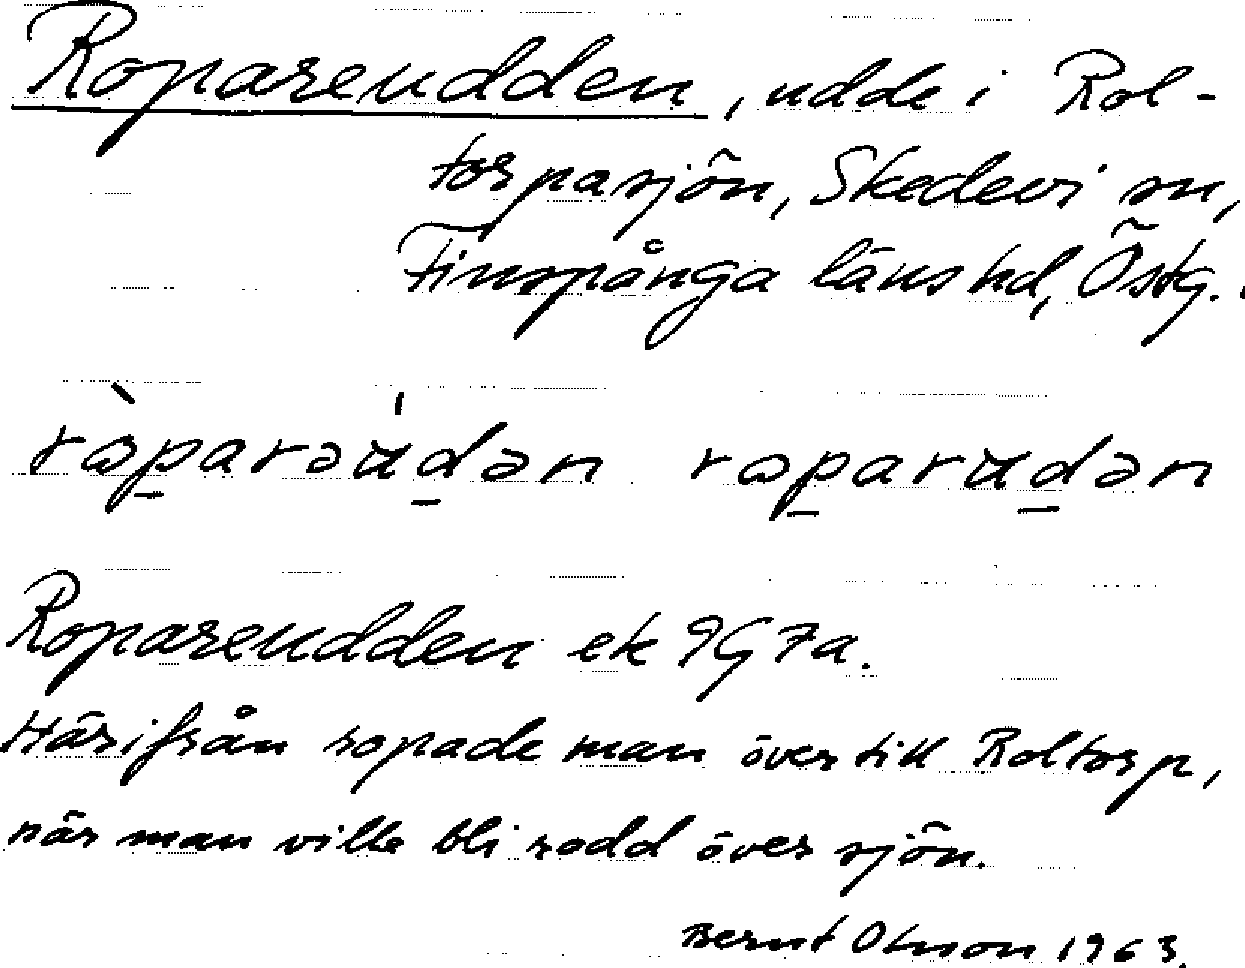 Ropareudden, udde i Rol-
torpasjön, Skedevi sn,
Finspånga läns hd, Östg.
Ropareudden ek 9G 7a.
Härifrån ropade man över till Roltorp,
när man ville bli rodd över sjön.
Bernt Olsson 1963.